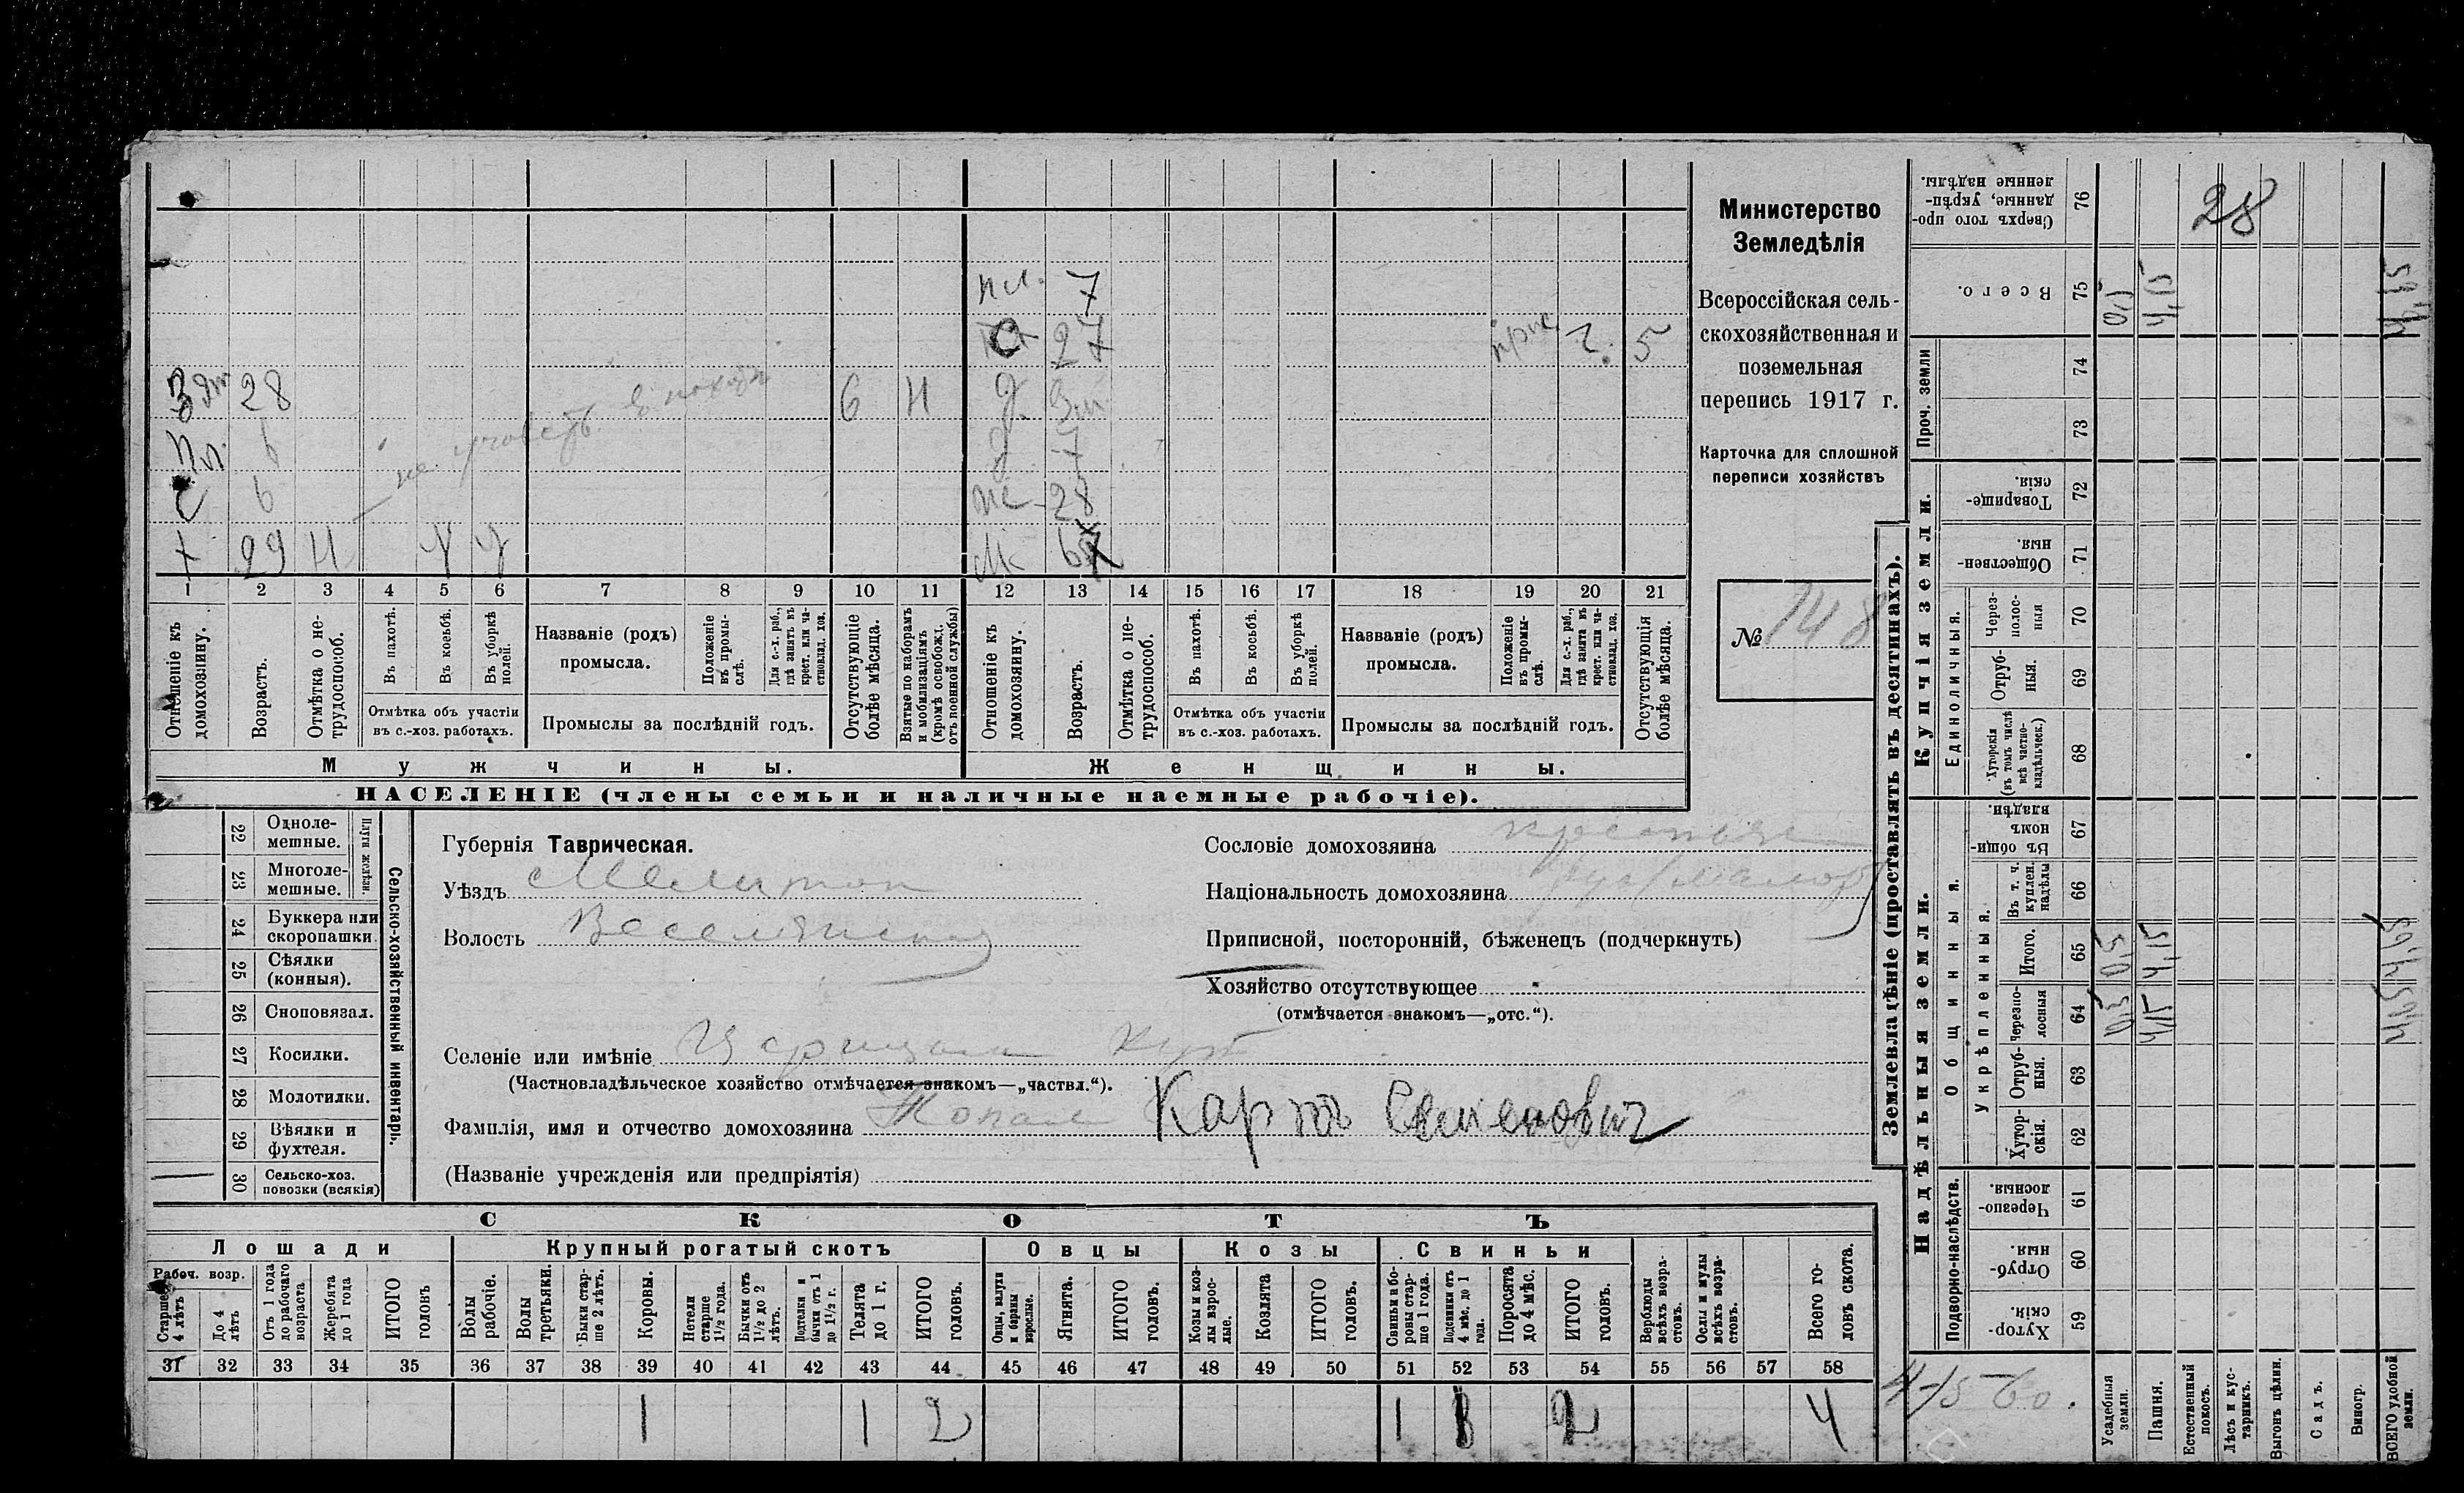 Министерство
Земледѣлія
Всероссійская сель-
скохозяйственная и
поземельная
перепись 1917 г.
Карточка для сплошной
переписи хозяйствъ
№ 148
пл. 7
С 27 2. 5
Зят 28 6 Н д. 3 м
пл. 6 не участв. д 7
с 6 ж 28
х 29 Н у у м 67
1 2 3 4 5 6 7 8 9 10 11 12 13 14 15 16 17 18 19 20 21
Отношеніе къ домохозяину.
Возрастъ.
Отмѣтка о не-трудоспособ.
Въ пахотѣ.
Въ косьбѣ.
Въ уборкѣ полей.
Отмѣтка объ участіи въ с.-хоз. работахъ.
Названіе (родъ) промысла.
Положеніе въ промы-слѣ.
Для с.-х. раб., гдѣ занятъ въ крест. или ча-стновлад. хоз.
Промыслы за послѣдній годъ.
Отсутствующіе болѣе мѣсяца.
Взятые по наборамъ и мобилизаціямъ (кромѣ освобожд. отъ военной службы)
Отношеніе къ домохозяину.
Возрастъ.
Отмѣтка о не-трудоспособ.
Въ пахотѣ.
Въ косьбѣ.
Въ уборкѣ полей.
Отмѣтка объ участіи въ с.-хоз. работахъ.
Названіе (родъ) промысла.
Положеніе въ промы-слѣ.
Для с.-х. раб., гдѣ занята въ крест. или ча-стновлад. хоз.
Промыслы за послѣдній годъ.
Отсутствующія болѣе мѣсяца.
Мужчины. Женщины.
НАСЕЛЕНІЕ (члены семьи и наличные наемные рабочіе).
22 Одноле-мешные.
23 Многоле-мешные.
Плуги желѣзн.
24 Буккера или скоропашки.
25 Сѣялки (конныя).
26 Сноповязал.
27 Косилки.
28 Молотилки.
29 Вѣялки и фухтеля.
30 Сельско-хоз. повозки (всякія)
Сельско-хозяйственный инвентарь.
Губернія Таврическая.
Уѣздъ Мелитоп
Волость Веселянская
Селеніе или имѣніе Царицын Кут
(Частновладѣльческое хозяйство отмѣчается знакомъ—„частвл.“).
Фамилія, имя и отчество домохозяина Копал Карпъ Семенович
(Названіе учрежденія или предпріятія)
Сословіе домохозяина крестьян
Національность домохозяина рус/малор
Приписной, посторонній, бѣженецъ (подчеркнуть)
Хозяйство отсутствующее
(отмѣчается знакомъ—„отс.“).
СКОТЪ
Лошади Крупный рогатый скотъ Овцы Козы Свиньи
Рабоч. возр.
Старше 4 лѣтъ
До 4 лѣтъ
Отъ 1 года до рабочаго возраста
Жеребята до 1 года
ИТОГО головъ
Волы рабочіе.
Волы третьяки.
Быки стар-ше 2 лѣтъ.
Коровы.
Нетели старше 1½ года.
Бычки отъ 1½ до 2 лѣтъ.
Подтелки и бычки отъ 1 до 1½ г.
Телята до 1 г.
ИТОГО головъ.
Овцы, валухи и бараны взрослые.
Ягнята.
ИТОГО головъ.
Козы и коз-лы взрос-лые.
Козлята
ИТОГО головъ.
Свиньи и бо-ровы стар-ше 1 года.
Подсвинки отъ 4 мѣс. до 1 года.
Поросята до 4 мѣс.
ИТОГО головъ.
Верблюды всѣхъ возра-стовъ.
Ослы и мулы всѣхъ возра-стовъ.
Всего го-ловъ скота.
31 32 33 34 35 36 37 38 39 40 41 42 43 44 45 46 47 48 49 50 51 52 53 54 55 56 57 58
1 1 2 1 2 4
Землевладѣніе (проставлять въ десятинахъ).
Сверхъ того про-данные, укрѣп-ленные надѣлы. 76 28
Всего. 75
Проч. земли 74 73
Купчія земли.
Товарище-скія. 72
Обществен-ныя. 71
Единоличныя.
Через-полос-ныя 70
Отруб-ныя. 69
Хуторскія (въ томъ числѣ всѣ частно-владѣльческ.) 68
Надѣльныя земли.
Общинныя.
Въ общи-номъ владѣн. 67
Укрѣпленныя.
Въ т. ч. куплен. надѣлы 66
Итого. 65
Черезпо-лосныя 64
Отруб-ныя. 63
Хутор-скія. 62
Подворно-наслѣдств.
Черезпо-лосныя. 61
Отруб-ныя. 60
Хутор-скія. 59
Усадебныя земли.
Пашня.
Естественный покосъ.
Лѣсъ и кус-тарникъ.
Выгонъ цѣлин.
Садъ.
Виногр.
ВСЕГО удобной земли.